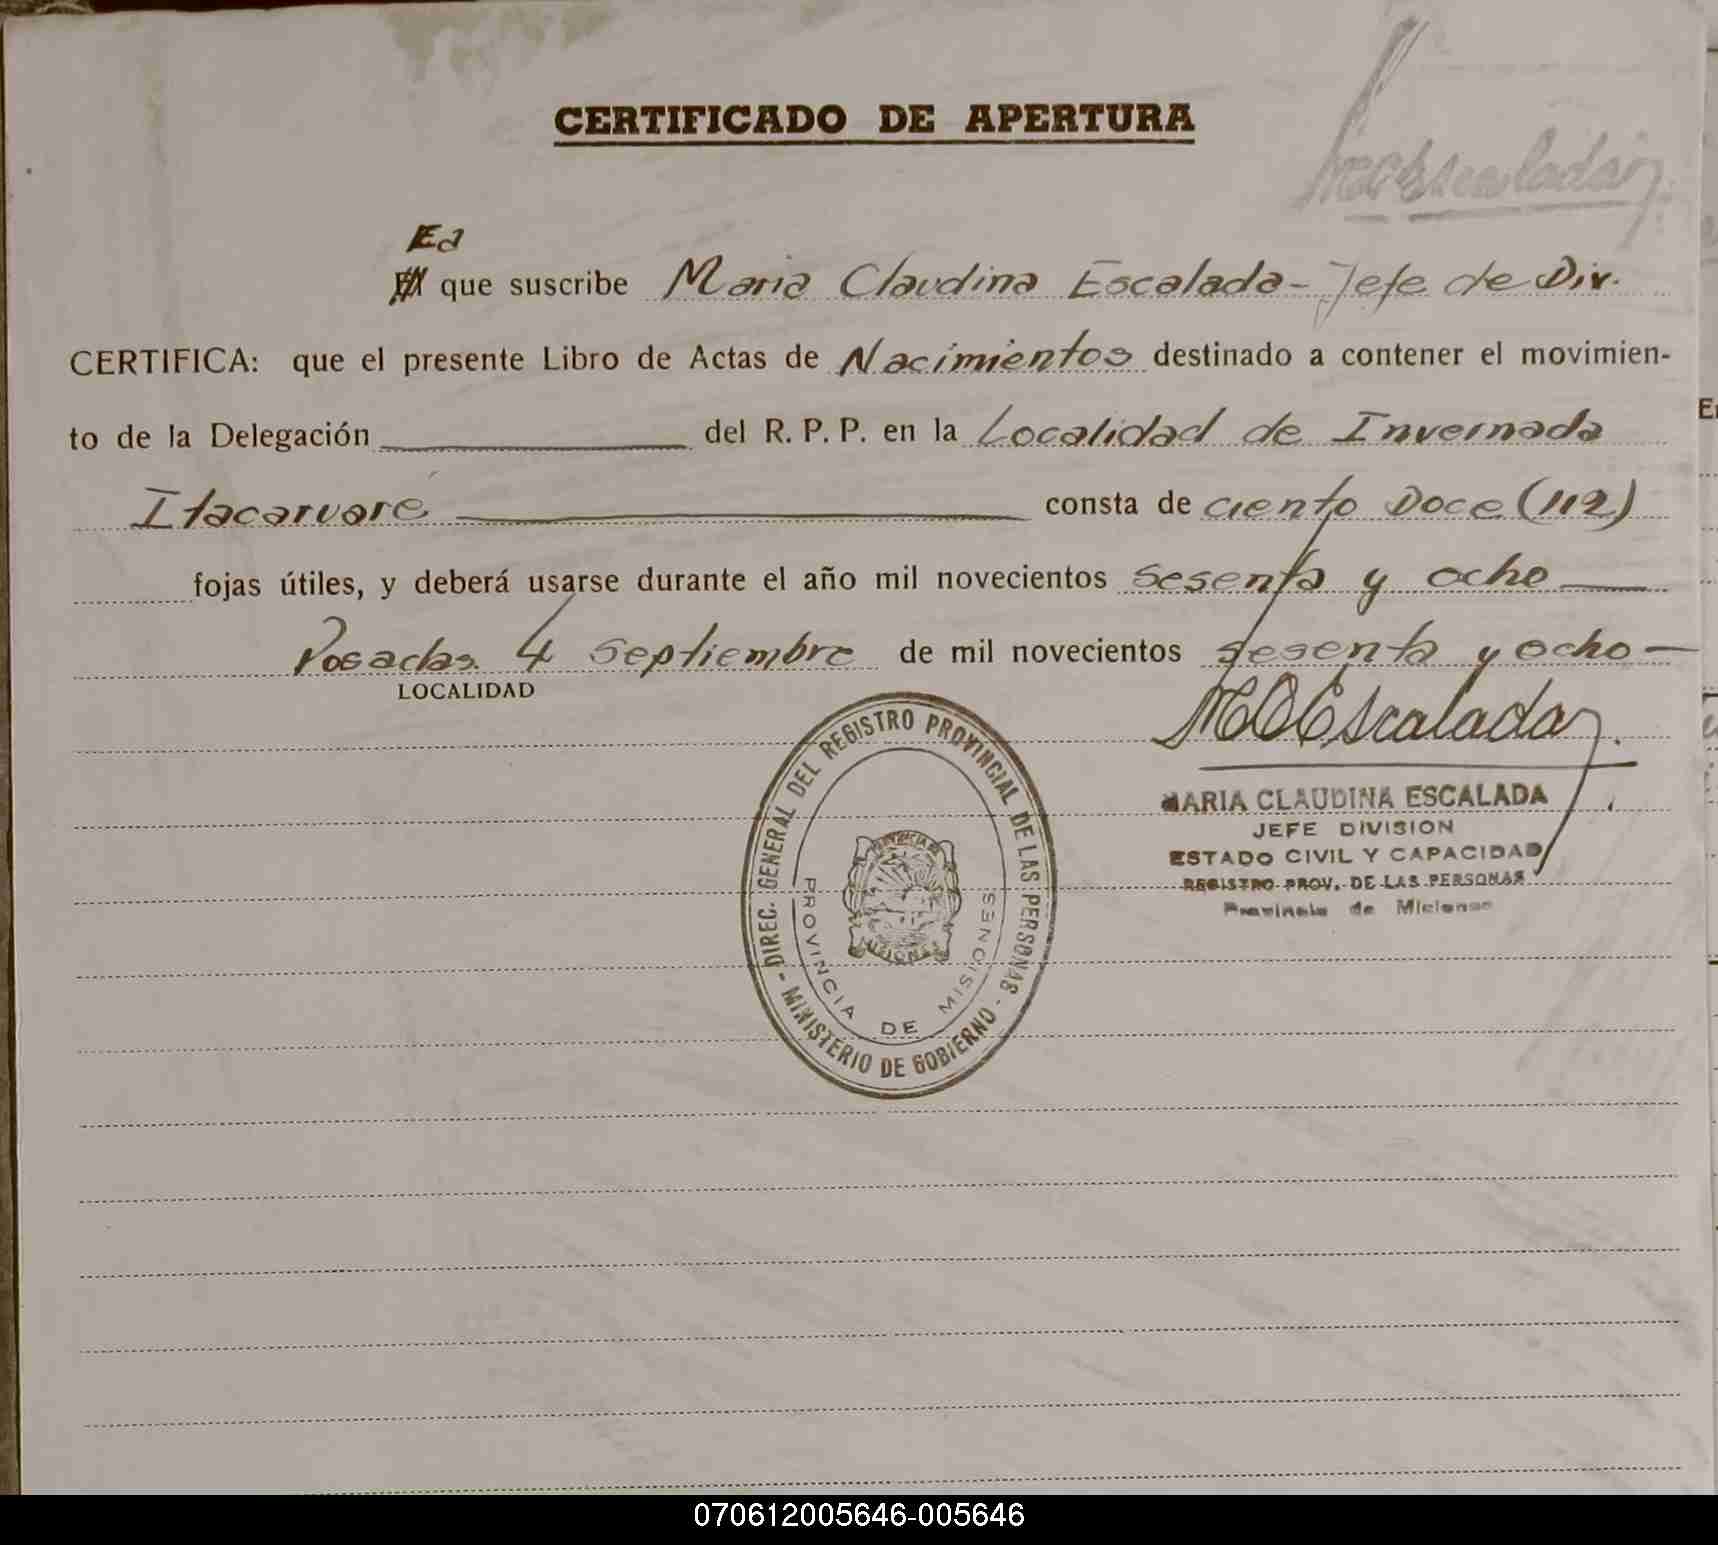 CERTIFICADO DE APERTURA
MCEscalada
La
que suscribe Maria Claudina Escalada - Jefe de Div.
CERTIFICA: que el presente Libro de Actas de Nacimientos destinado a contener el movimien-
to de la Delegación del R. P. P. en la Localidad de Invernada
Itacaruaré consta de ciento Doce (112)
fojas útiles, y deberá usarse durante el año mil novecientos sesenta y ocho
Posadas. 4 septiembre de mil novecientos sesenta y ocho —
LOCALIDAD
MCEscalada
MARIA CLAUDINA ESCALADA
JEFE DIVISION
ESTADO CIVIL Y CAPACIDAD
REGISTRO PROV. DE LAS PERSONAS
Provincia de Misiones
DIREC. GENERAL DEL REGISTRO PROVINCIAL DE LAS PERSONAS - MINISTERIO DE GOBIERNO -
PROVINCIA DE MISIONES
070612005646-005646